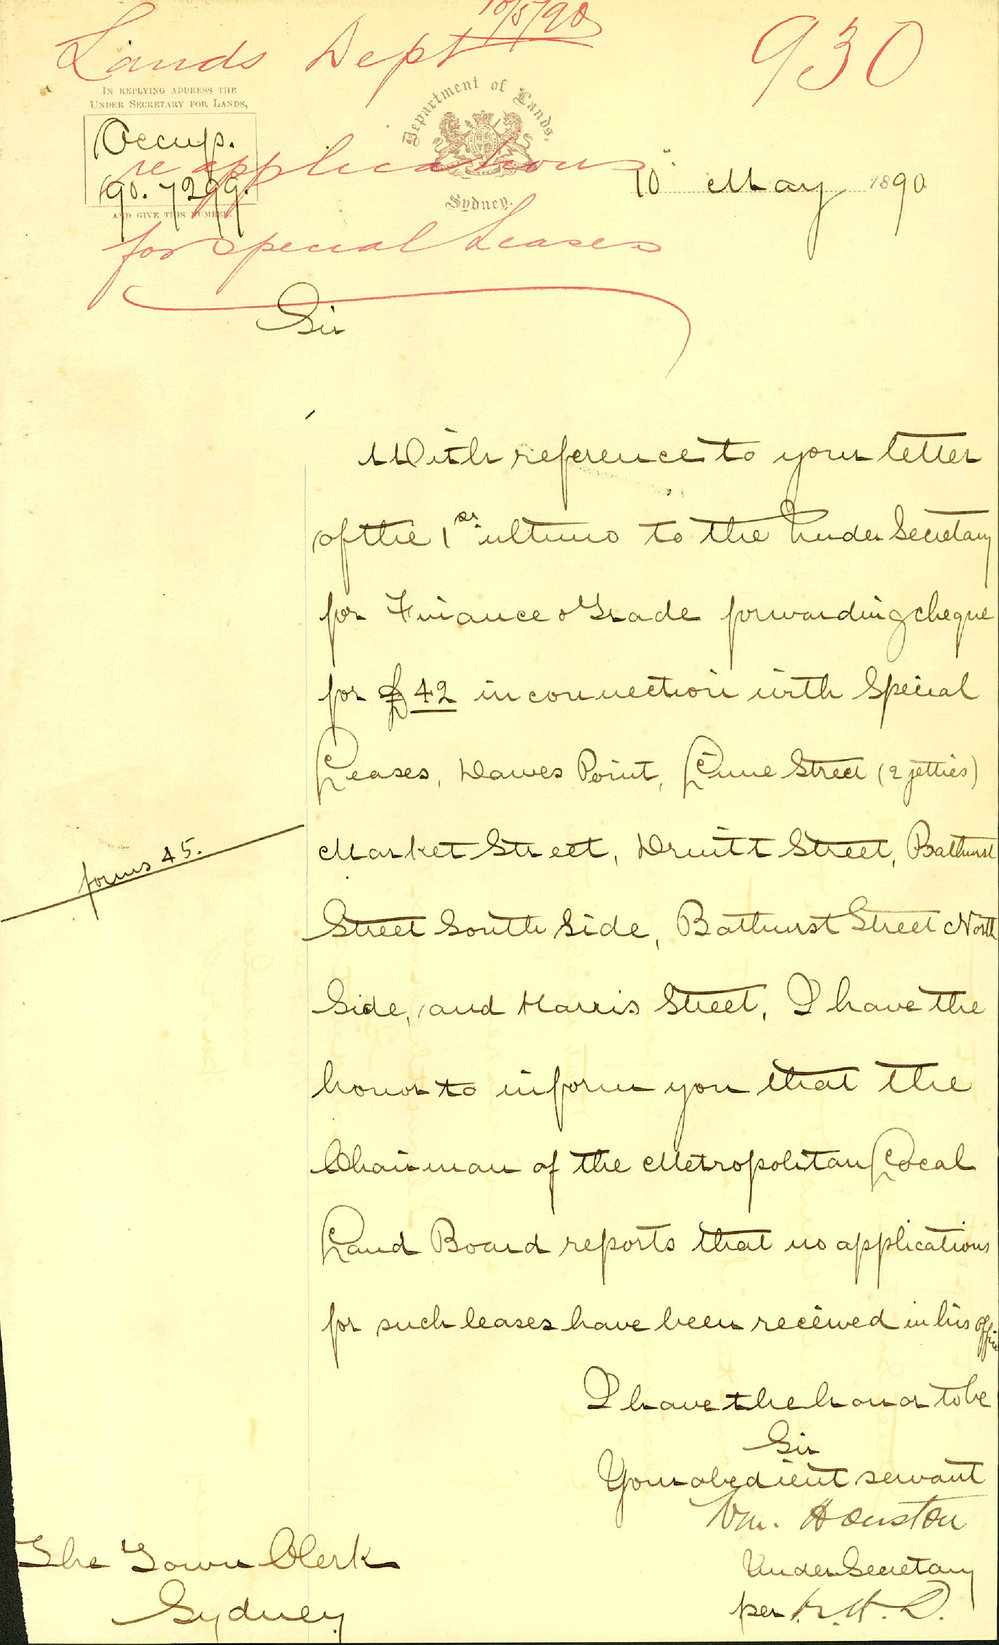 Lands Dept 10/5/90
930
IN REPLYING ADDRESS THE
UNDER SECRETARY FOR LANDS,
Occup.
90. 7299.
AND GIVE THIS NUMBER
Department of Lands,
Sydney.
re applications
for special Leases
10 May 1890
Sir
With reference to your letter
of the 1st ultimo to the Under Secretary
for Finance & Trade forwarding cheque
for £42 in connection with Special
Leases, Dawes Point, Lime Street (2 jetties)
Market Street, Druitt Street, Bathurst
Street South Side, Bathurst Street North
Side, and Harris Street, I have the
honor to inform you that the
Chairman of the Metropolitan Local
Land Board reports that no applications
for such leases have been received in his office
forms 45.
I have the honor to be
Sir
Your obedient servant
Wm. Houston
Under Secretary
per
The Town Clerk
Sydney